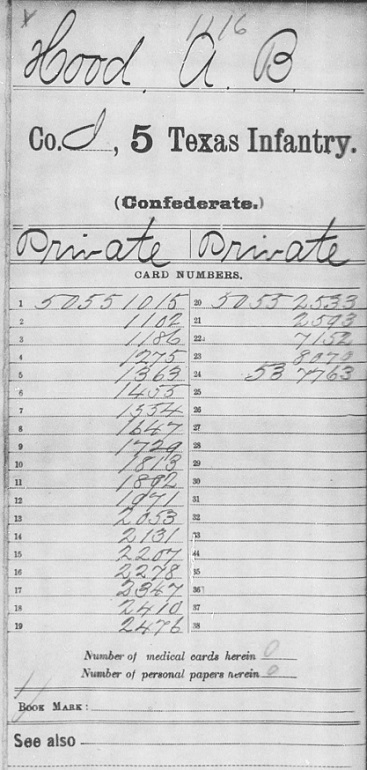 1116
Hood, A. B.
Co. I, 5 Texas Infantry.
(Confederate.)
Private | Private
CARD NUMBERS.
1 50551015 20 50552533
2 1102 21 2593
3 1186 22 7152
4 1275 23 8070
5 1363 24 537763
6 1455 25
7 1554 26
8 1647 27
9 1729 28
10 1813 29
11 1892 30
12 1971 31
13 2053 32
14 2131 33
15 2207 44
16 2278 35
17 2347 36
18 2410 37
19 2476 38
Number of medical cards herein 0
Number of personal papers herein 0
BOOK MARK:
See also